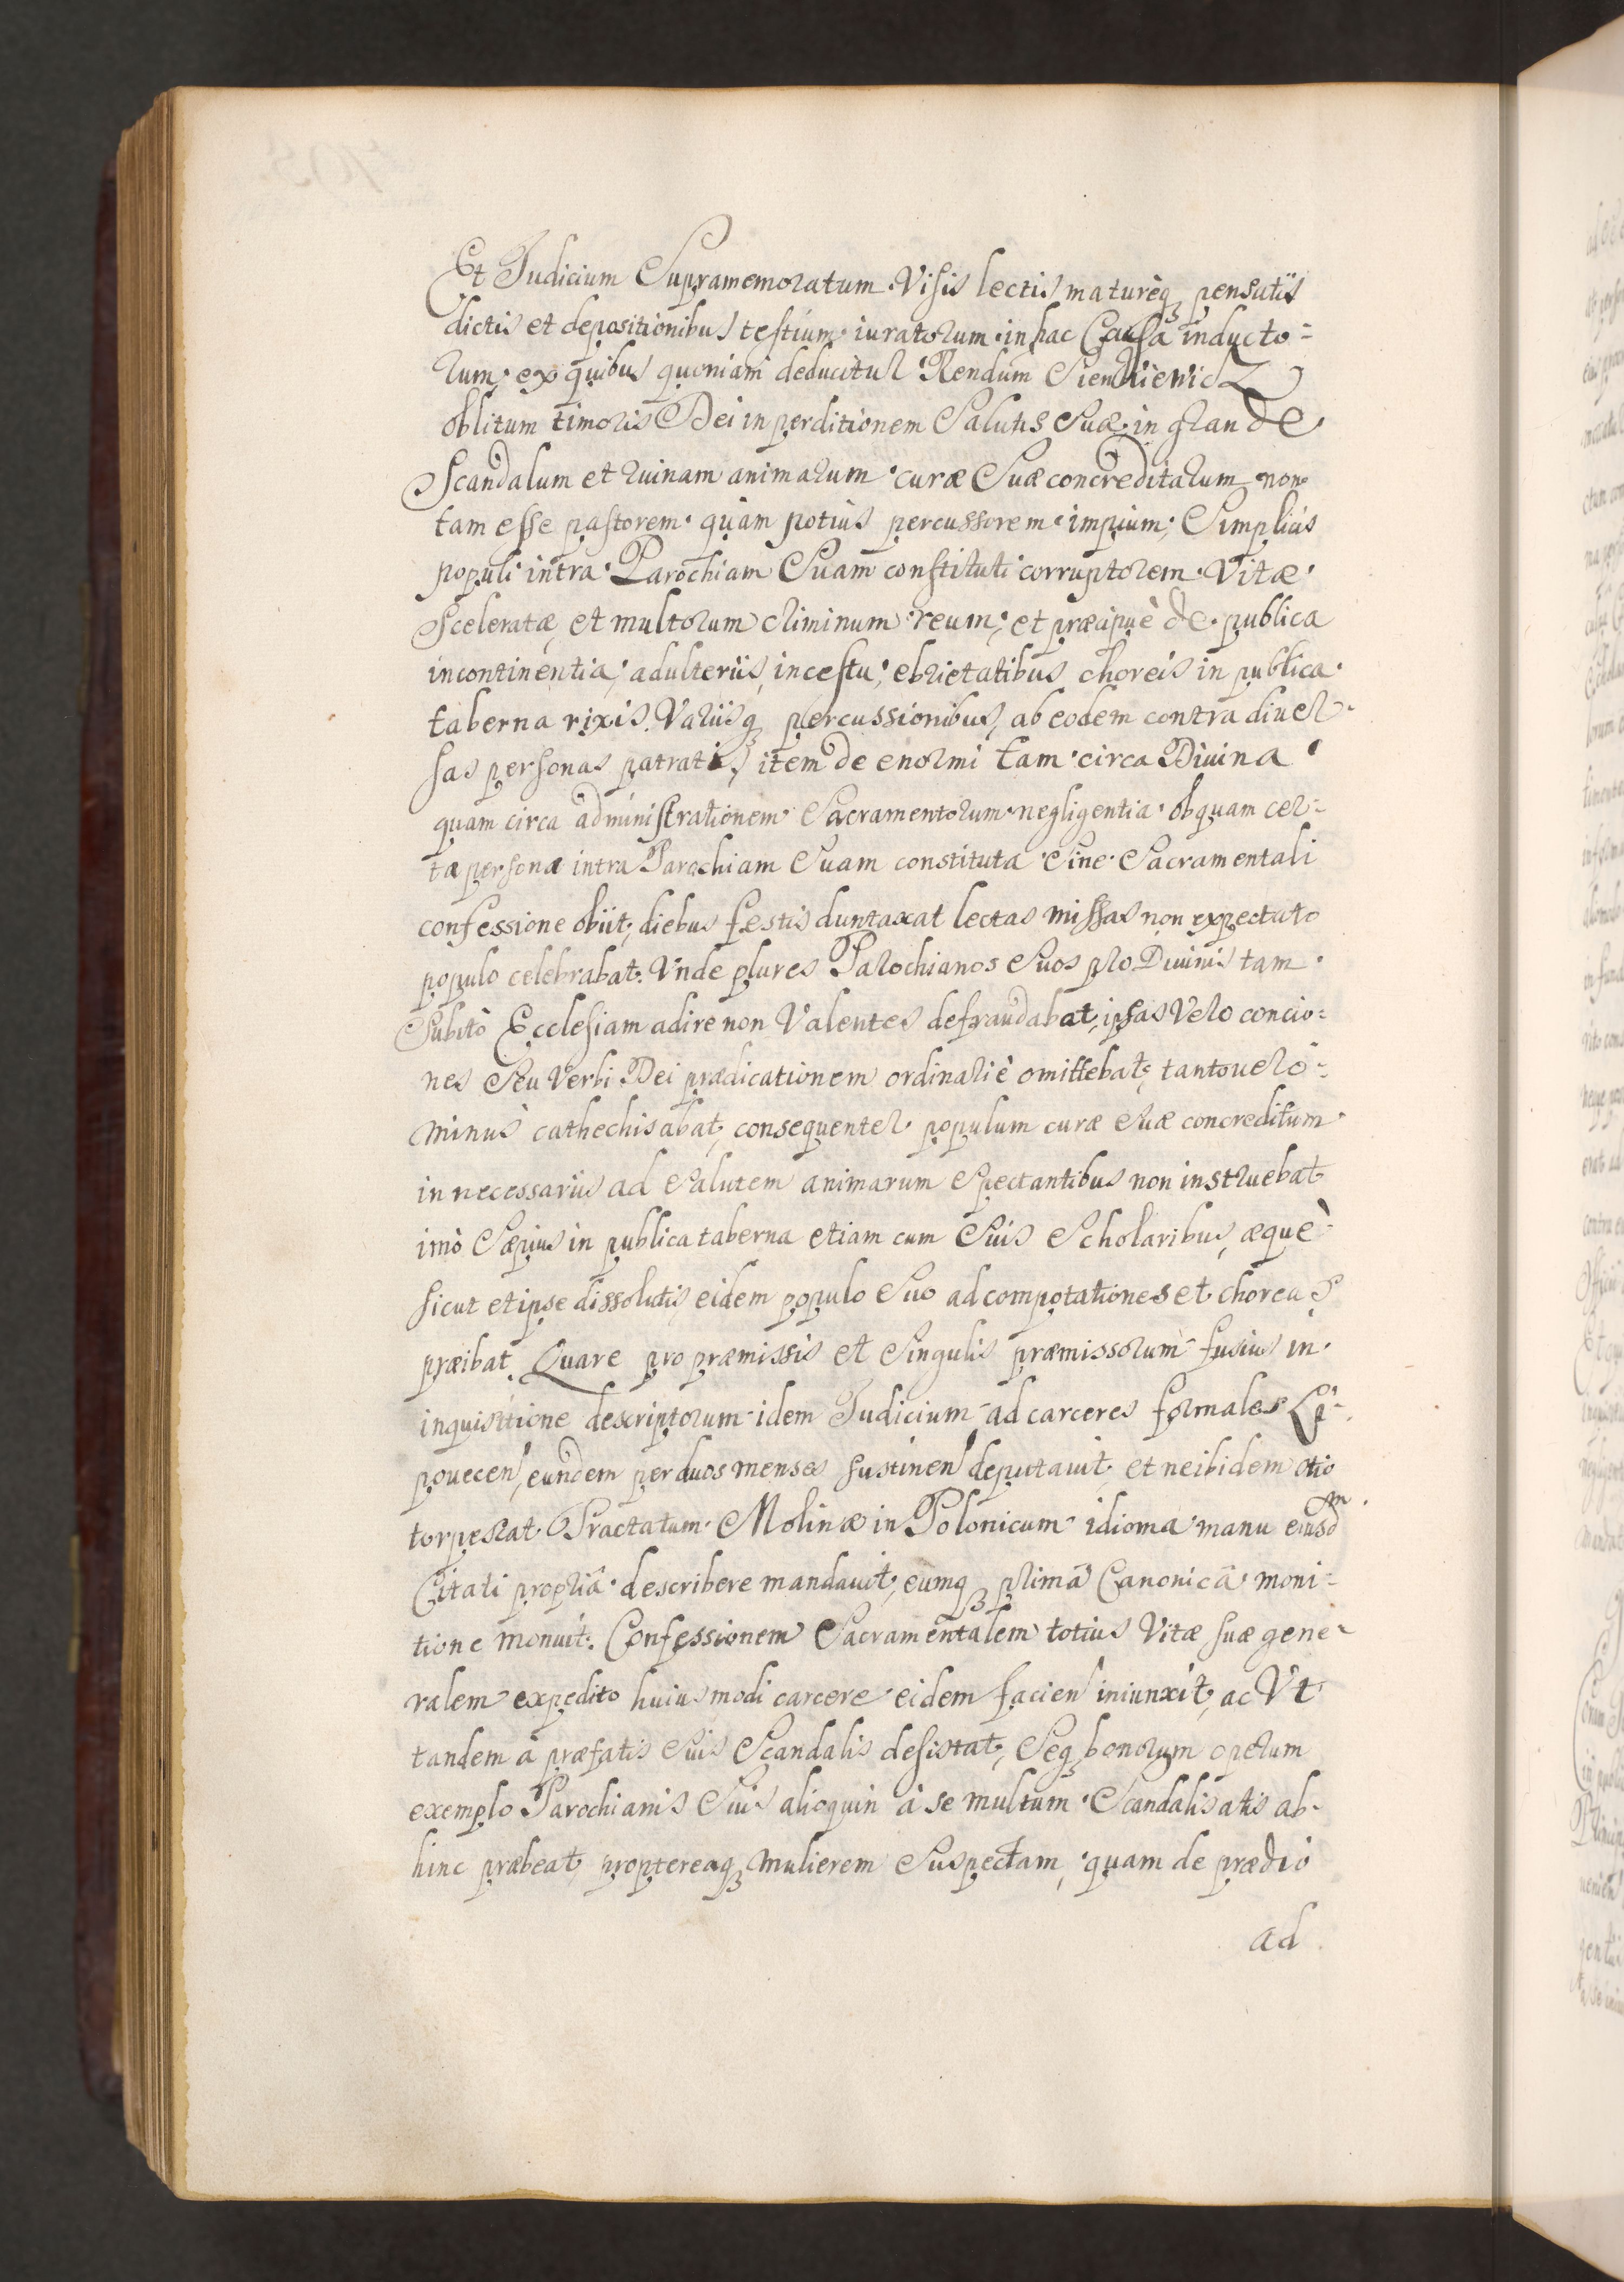 Et Judicium Supramemoratum Visis lectis matureq3 pensatis
dictis et depositionibus testium iuratorum in hac Causa inducto=
rum, ex quibus quoniam deducitur Rendum Sienkiewicz
oblitum timoris Dei in perditionem Salutis Suæ, in grande
Scandalum et ruinam animarum curæ Suæ concreditarum non
tam esse pastorem quàm potiùs percussorem impium, Simplicis
populi intra Parochiam Suam constituti corruptorem Vitæ
Sceleratæ, et multorum criminum reum, et præcipuè de publica
incontinentia, adulteriis, incestu, ebrietatibus choreis in publica
taberna rixis Variisq3 percussionibus, ab eodem contra diuer-
sas personas patratis, item de enormi tam circa Diuina
quam circa administrationem Sacramentorum negligentia ob quam cer=
tæ personæ intra Parochiam Suam constituta Sine Sacramentali
confessione obiit, diebus festis duntaxat lectas missas non expectato
populo celebrabat. Vnde plures Parochianos Suos pro Diuinis tam
Subitò Ecclesiam adire non Valentes defraudabat, ipsas Vero concio=
nes Seu Verbi Dei prædicationem ordinariè omittebat, tanto uerò
minus cathechisabat, consequenter populum curæ suæ concreditum
in necessariis ad Salutem animarum Spectantibus non instruebat
imò Sæpius in publica taberna etiam cum Suis Scholaribus, æquè
sicut et ipse dissolutis, eidem populo Suo ad compotationes et choreas
præibat. Quare pro præmissis et Singulis præmissorum fusius in
inquisitione descriptorum idem Judicium ad carceres formales Li=
pouecen, eundem per duos menses sustinen deputauit, et ne ibidem otio
torpescat Tractatum Molinæ in Polonicum idioma manu eiusdm
Citati propriâ describere mandauit, eumq3 primâ Canonicâ moni=
tione monuit. Confessionem Sacramentalem totius Vitæ suæ gene-
ralem expedito huiusmodi carcere eidem facien iniunxit, ac Vt
tandem à præfatis Suis Scandalis desistat, Seq3 bonorum operum
exemplo Parochianis Suis alioquin à se multum Scandalisatis ab-
hinc præbeat, proptereaq3 mulierem Suspectam, quam de prædio
ad